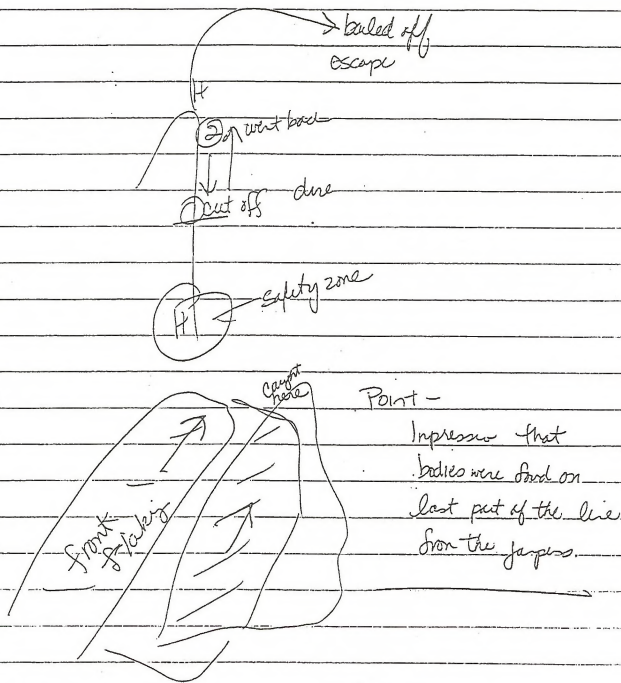 bailed off
escape
H
2 went back
cut off
safety zone
H
caught
here
Point -
Impression that
bodies were found on
last part of the line
from the jumpers.
front